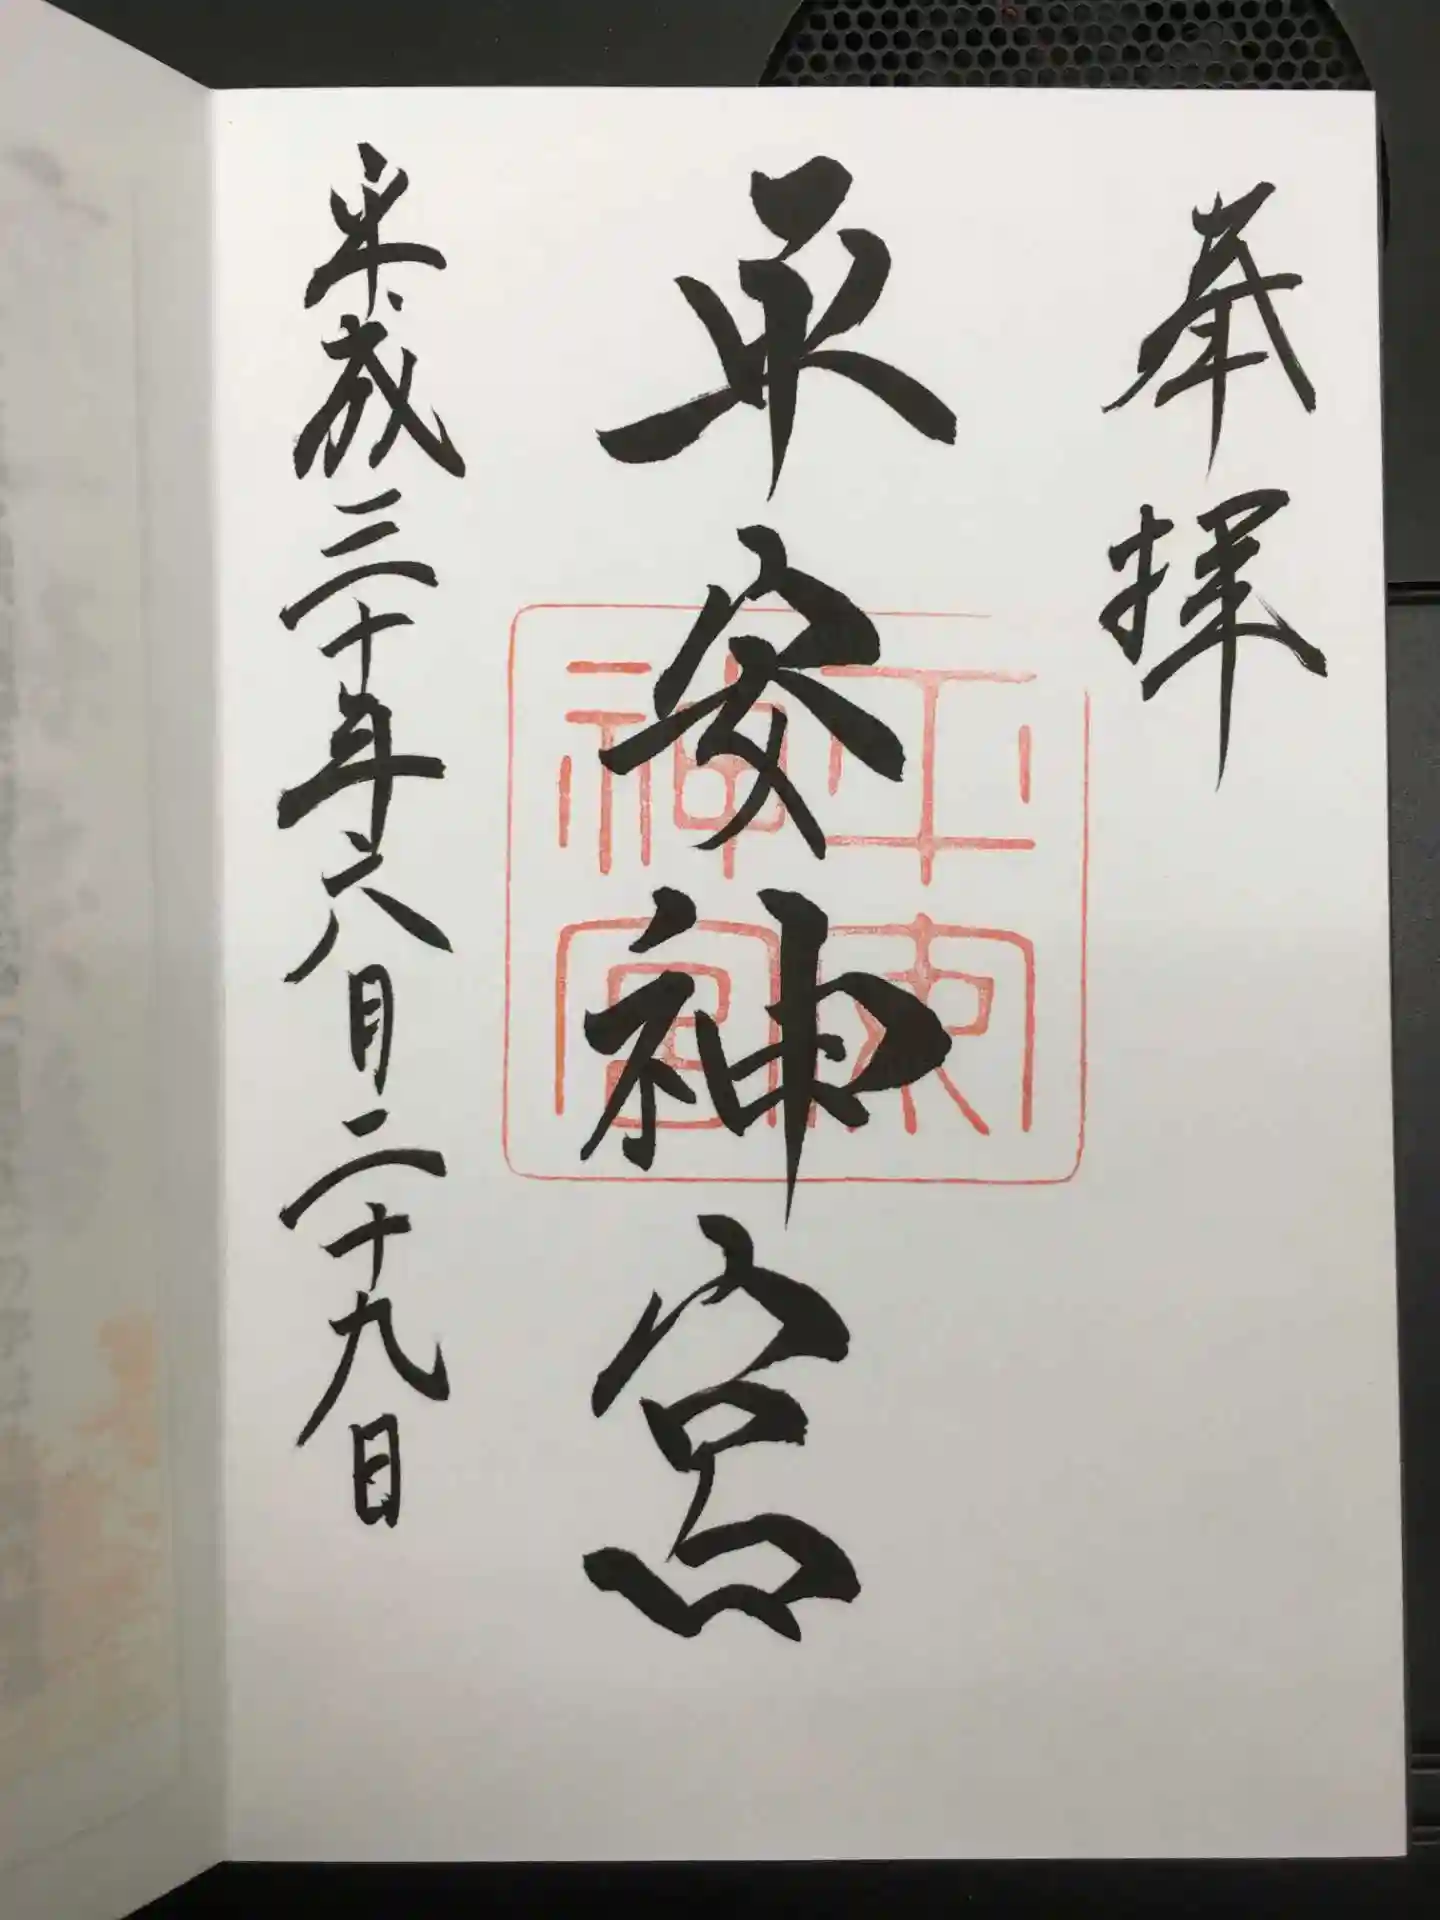 奉拝
平安神宮
平成三十年六月二十九日
平安
神宮